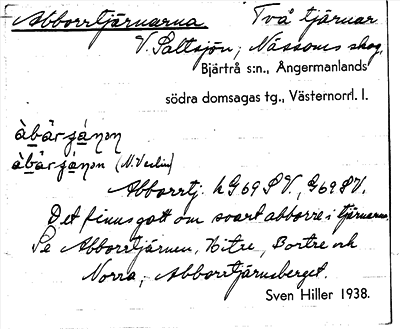 Abborrtjärnarna Två tjärnar
V. Saltsjön, Nässoms skog,
Bjärtrå s:n., Ångermanlands
södra domsagas tg., Västernorrl. l.
(N. Veslin)
Abborrtj. hG69SV., G69SV.
Det finns gott om svart abborre i tjärnarna.
Se Abborrtjärnen, Hitre, Bortre och
Norra; Abborrtjärnsberget.
Sven Hiller 1938.